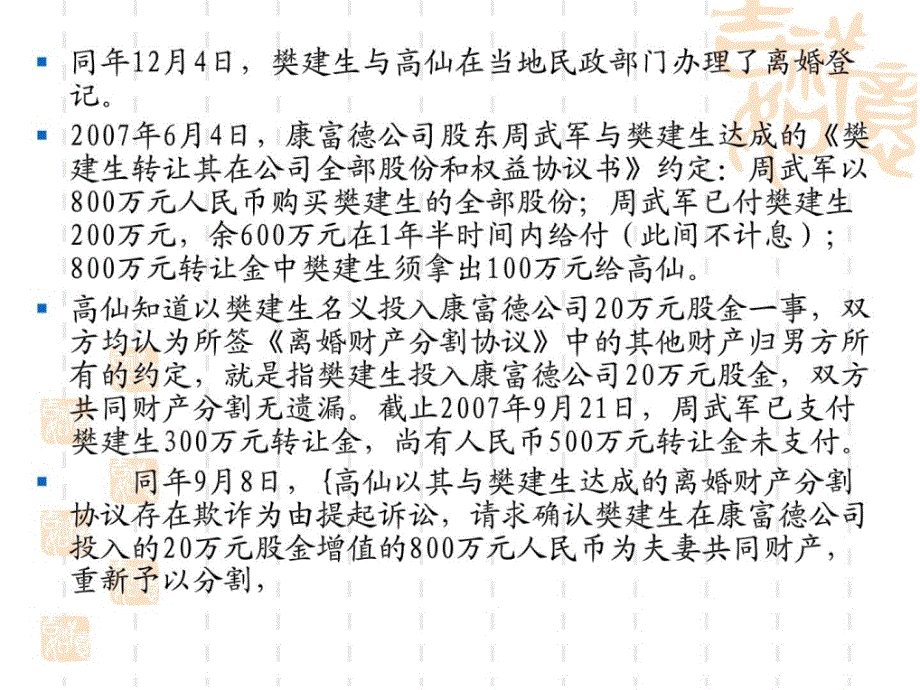 同年12月4日，樊建生与高仙在当地民政部门办理了离婚登
记。
2007年6月4日，康富德公司股东周武军与樊建生达成的《樊
建生转让其在公司全部股份和权益协议书》约定：周武军以
800万元人民币购买樊建生的全部股份；周武军已付樊建生
200万元，余600万元在1年半时间内给付（此间不计息）；
800万元转让金中樊建生须拿出100万元给高仙。
高仙知道以樊建生名义投入康富德公司20万元股金一事，双
方均认为所签《离婚财产分割协议》中的其他财产归男方所
有的约定，就是指樊建生投入康富德公司20万元股金，双方
共同财产分割无遗漏。截止2007年9月21日，周武军已支付
樊建生300万元转让金，尚有人民币500万元转让金未支付。
同年9月8日，{高仙以其与樊建生达成的离婚财产分割
协议存在欺诈为由提起诉讼，请求确认樊建生在康富德公司
投入的20万元股金增值的800万元人民币为夫妻共同财产，
重新予以分割，